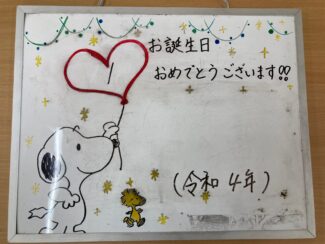 1
お誕生日
おめでとうございます!!
(令和4年)